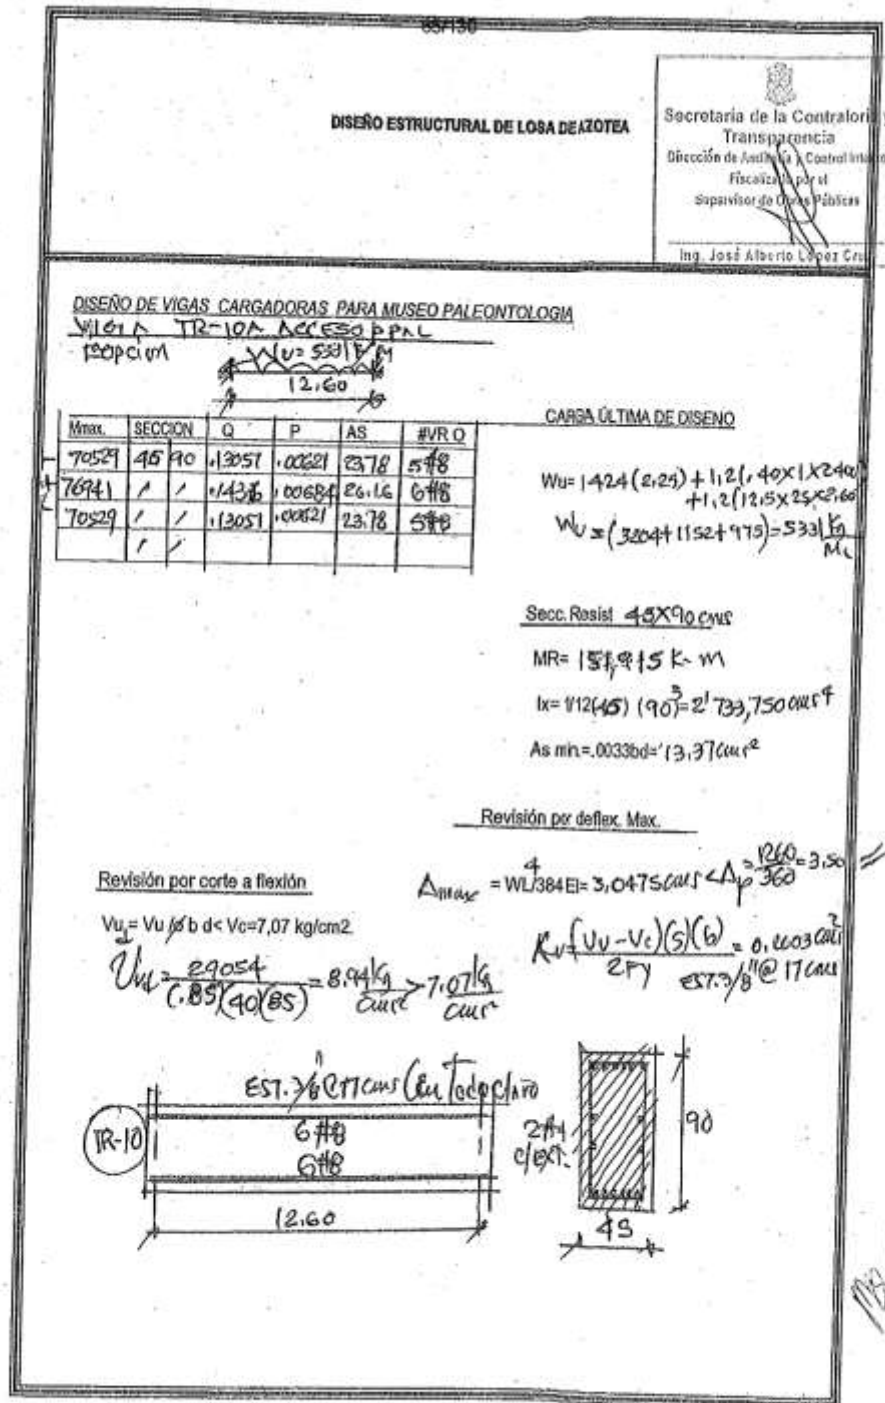 65/130
DISEÑO ESTRUCTURAL DE LOSA DE AZOTEA
Secretaría de la Contraloría y
Transparencia
Dirección de Auditoría y Control Interno
Fiscalizado por el
Supervisor de Obras Públicas
Ing. José Alberto López Cru
DISEÑO DE VIGAS CARGADORAS PARA MUSEO PALEONTOLOGIA
VIGA TR-10A ACCESO PPAL
Wu= 5331 K/M
12.60
Mmax. SECCION Q P AS #VR O
70529 45 90 .13051 .00621 23.78 5#8
76941 .14336 .00684 26.16 6#8
70529 .13051 .00621 23.78 5#8
CARGA ÚLTIMA DE DISENO
Wu= 1424 (2.25) + 1.2(.40x1x2400
+1.2(12.5x25x2.60
Wu = (3204+1152+975)=5331 Kg/ML
Secc. Resist 45X90 cms
MR= 151,915 K-m
Ix= 1/12(45) (90)³=2'733,750 cms⁴
As min.=.0033bd= 13.37 cms²
Revisión por deflex. Max.
Δmax = WL⁴/384EI= 3.0475 cms < Δp = 1260/360 = 3.50
Revisión por corte a flexión
Vu= Vu/ø b d< Vc=7,07 kg/cm2.
Vu= 29054/(.85)(40)(85) = 8.94 kg/cms² > 7.07 kg/cms²
(Vu-Vc)(s)(b)/2Fy = 0.6603 cms²
EST. 3/8"@ 17 cms
EST. 3/8"@17cms (En Todo Claro
TR-10
6#8
6#8
12.60
2#4
c/ext.
90
45